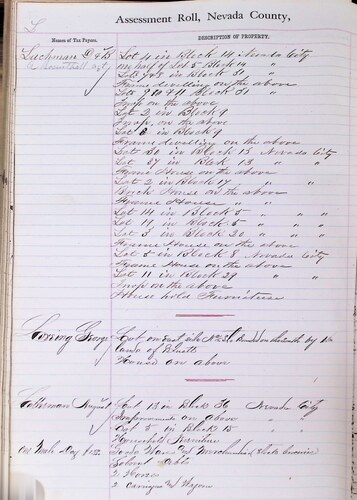 L
Assessment Roll, Nevada County,
Names of Tax Payers.
DESCRIPTION OF PROPERTY.
Lachman D & B
Lot 4 in Block 14 Nevada City
on half of Lot 5 Block 14 "
Lots 7 & 8 in Block 31 "
Frame dwelling on the above
Lots 9 10 & 11 Block 31 "
Imp on the above
Lot 2 in Block 9
Imps. on the above
Lot 3 in Block 9
Frame dwelling on the above
Lot 30 in Block 15 Nevada City
Lot 37 in Block 13 " "
Frame House on the above
Lot 2 in Block 17 " "
Brick House on the above
Frame House " "
Lot 14 in Block 5 " "
Lot 11 in Block 5 " "
Lot 3 in Block 20 " "
Frame House on the above
Lot 5 in Block 8 Nevada City
Frame House on the above
Lot 11 in Block 29 "
Imp on the above
House hold Furniture
George
Lot on East side
Land of
House on above
August
Lot 13 in Block 36 Nevada City
Improvements on above
Lot 5 in Block 15 "
Household Furniture
Merchandise
2 Horses
2 Carriages & Wagons